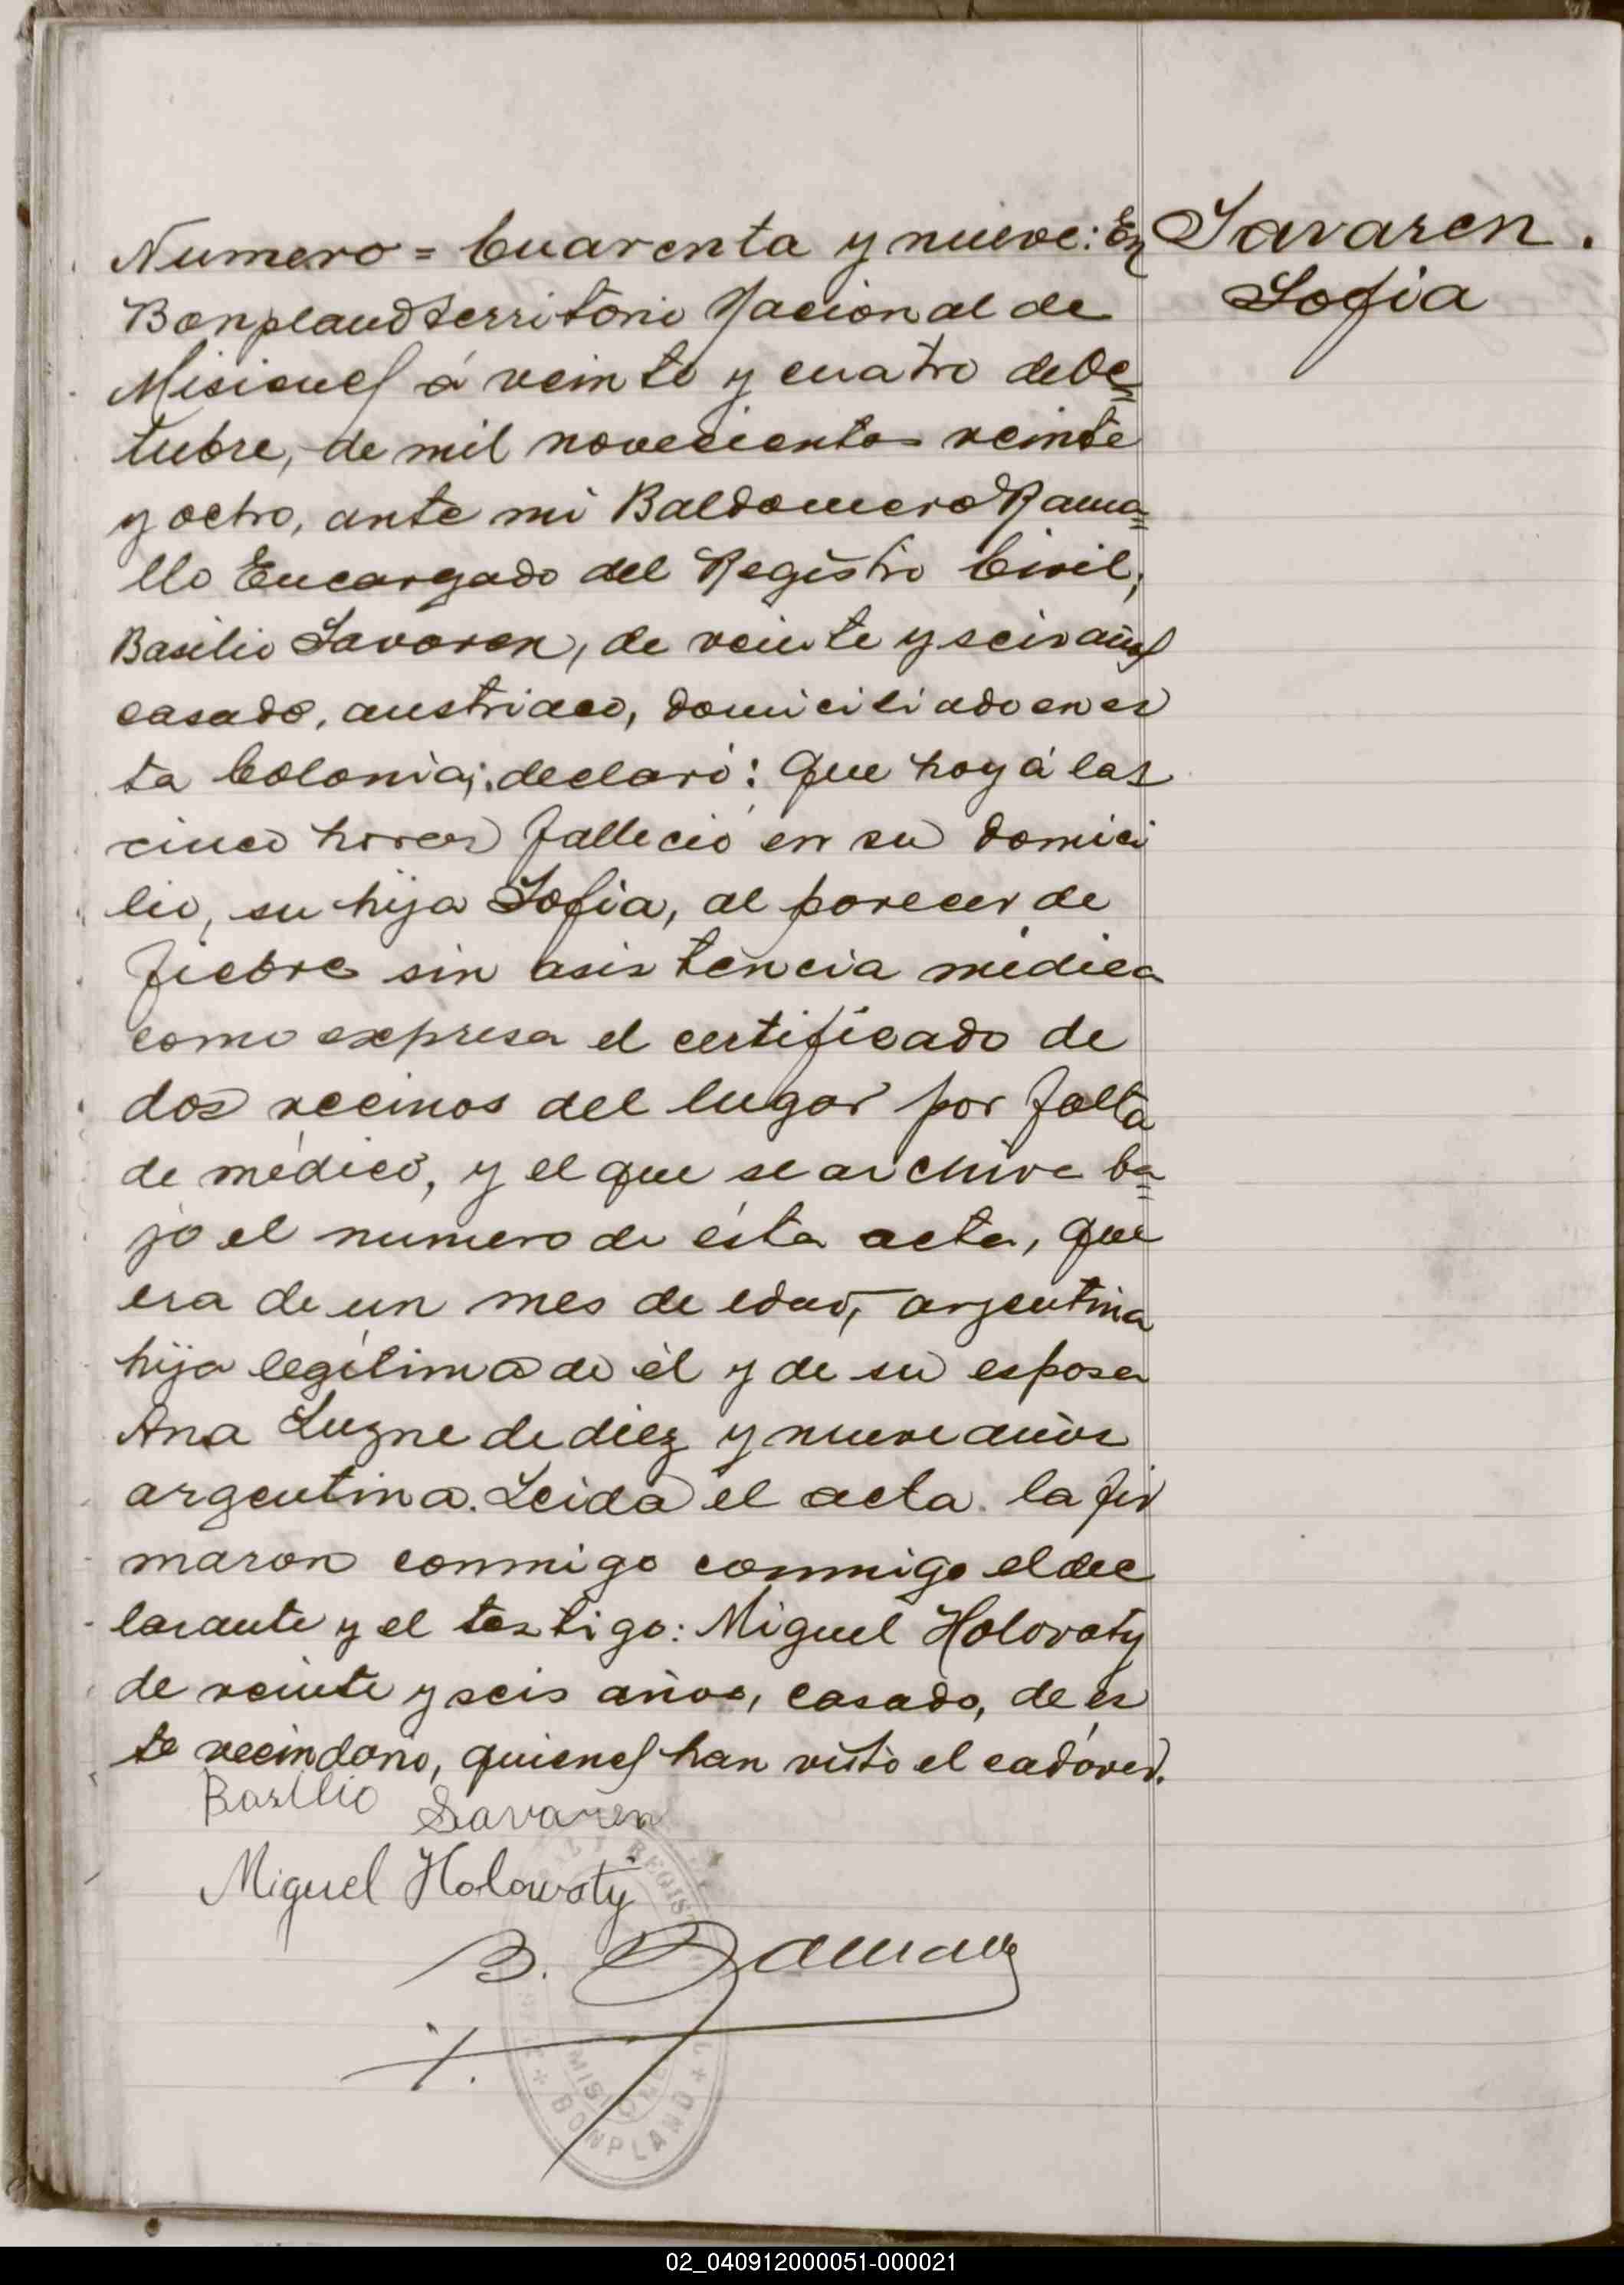 Savaren.
Sofia
Numero = Cuarenta y nueve: En
Bonpland Territorio Nacional de
Misiones á veinte y cuatro de Oc=
tubre, de mil novecientos veinte
y ocho, ante mi Baldomero Rama=
llo Encargado del Registro Civil;
Basilio Savaren, de veinte y seis años
casado, austriaco, domiciliado en es
ta Colonia; declaró: Que hoy á las
cinco horas falleció en su domici
lio, su hija Sofia, al parecer de
fiebre sin asistencia médica
como expresa el certificado de
dos vecinos del lugar por falta
de médico, y el que se archiva ba=
jo el numero de ésta acta, que
era de un mes de edad, argentina
hija legítima de él y de su esposa
Ana Luzne de diez y nueve años
argentina. Leida el acta la fir
maron conmigo conmigo el dec
larante y el testigo: Miguel Holovaty
de veinte y seis años, casado, de es
te vecindario, quienes han visto el cadáver.
Basilio Savaren
Miguel Holowaty
B. Ramallo
REGIST
MISIONES
BONPLAND
02_040912000051-000021